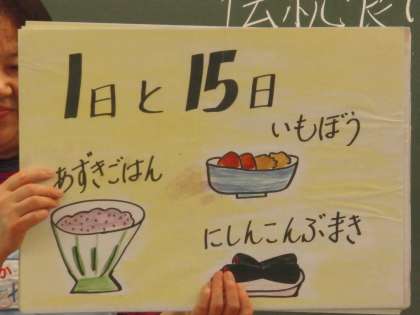 1日と15日
いもぼう
あずきごはん
にしんこんぶまき